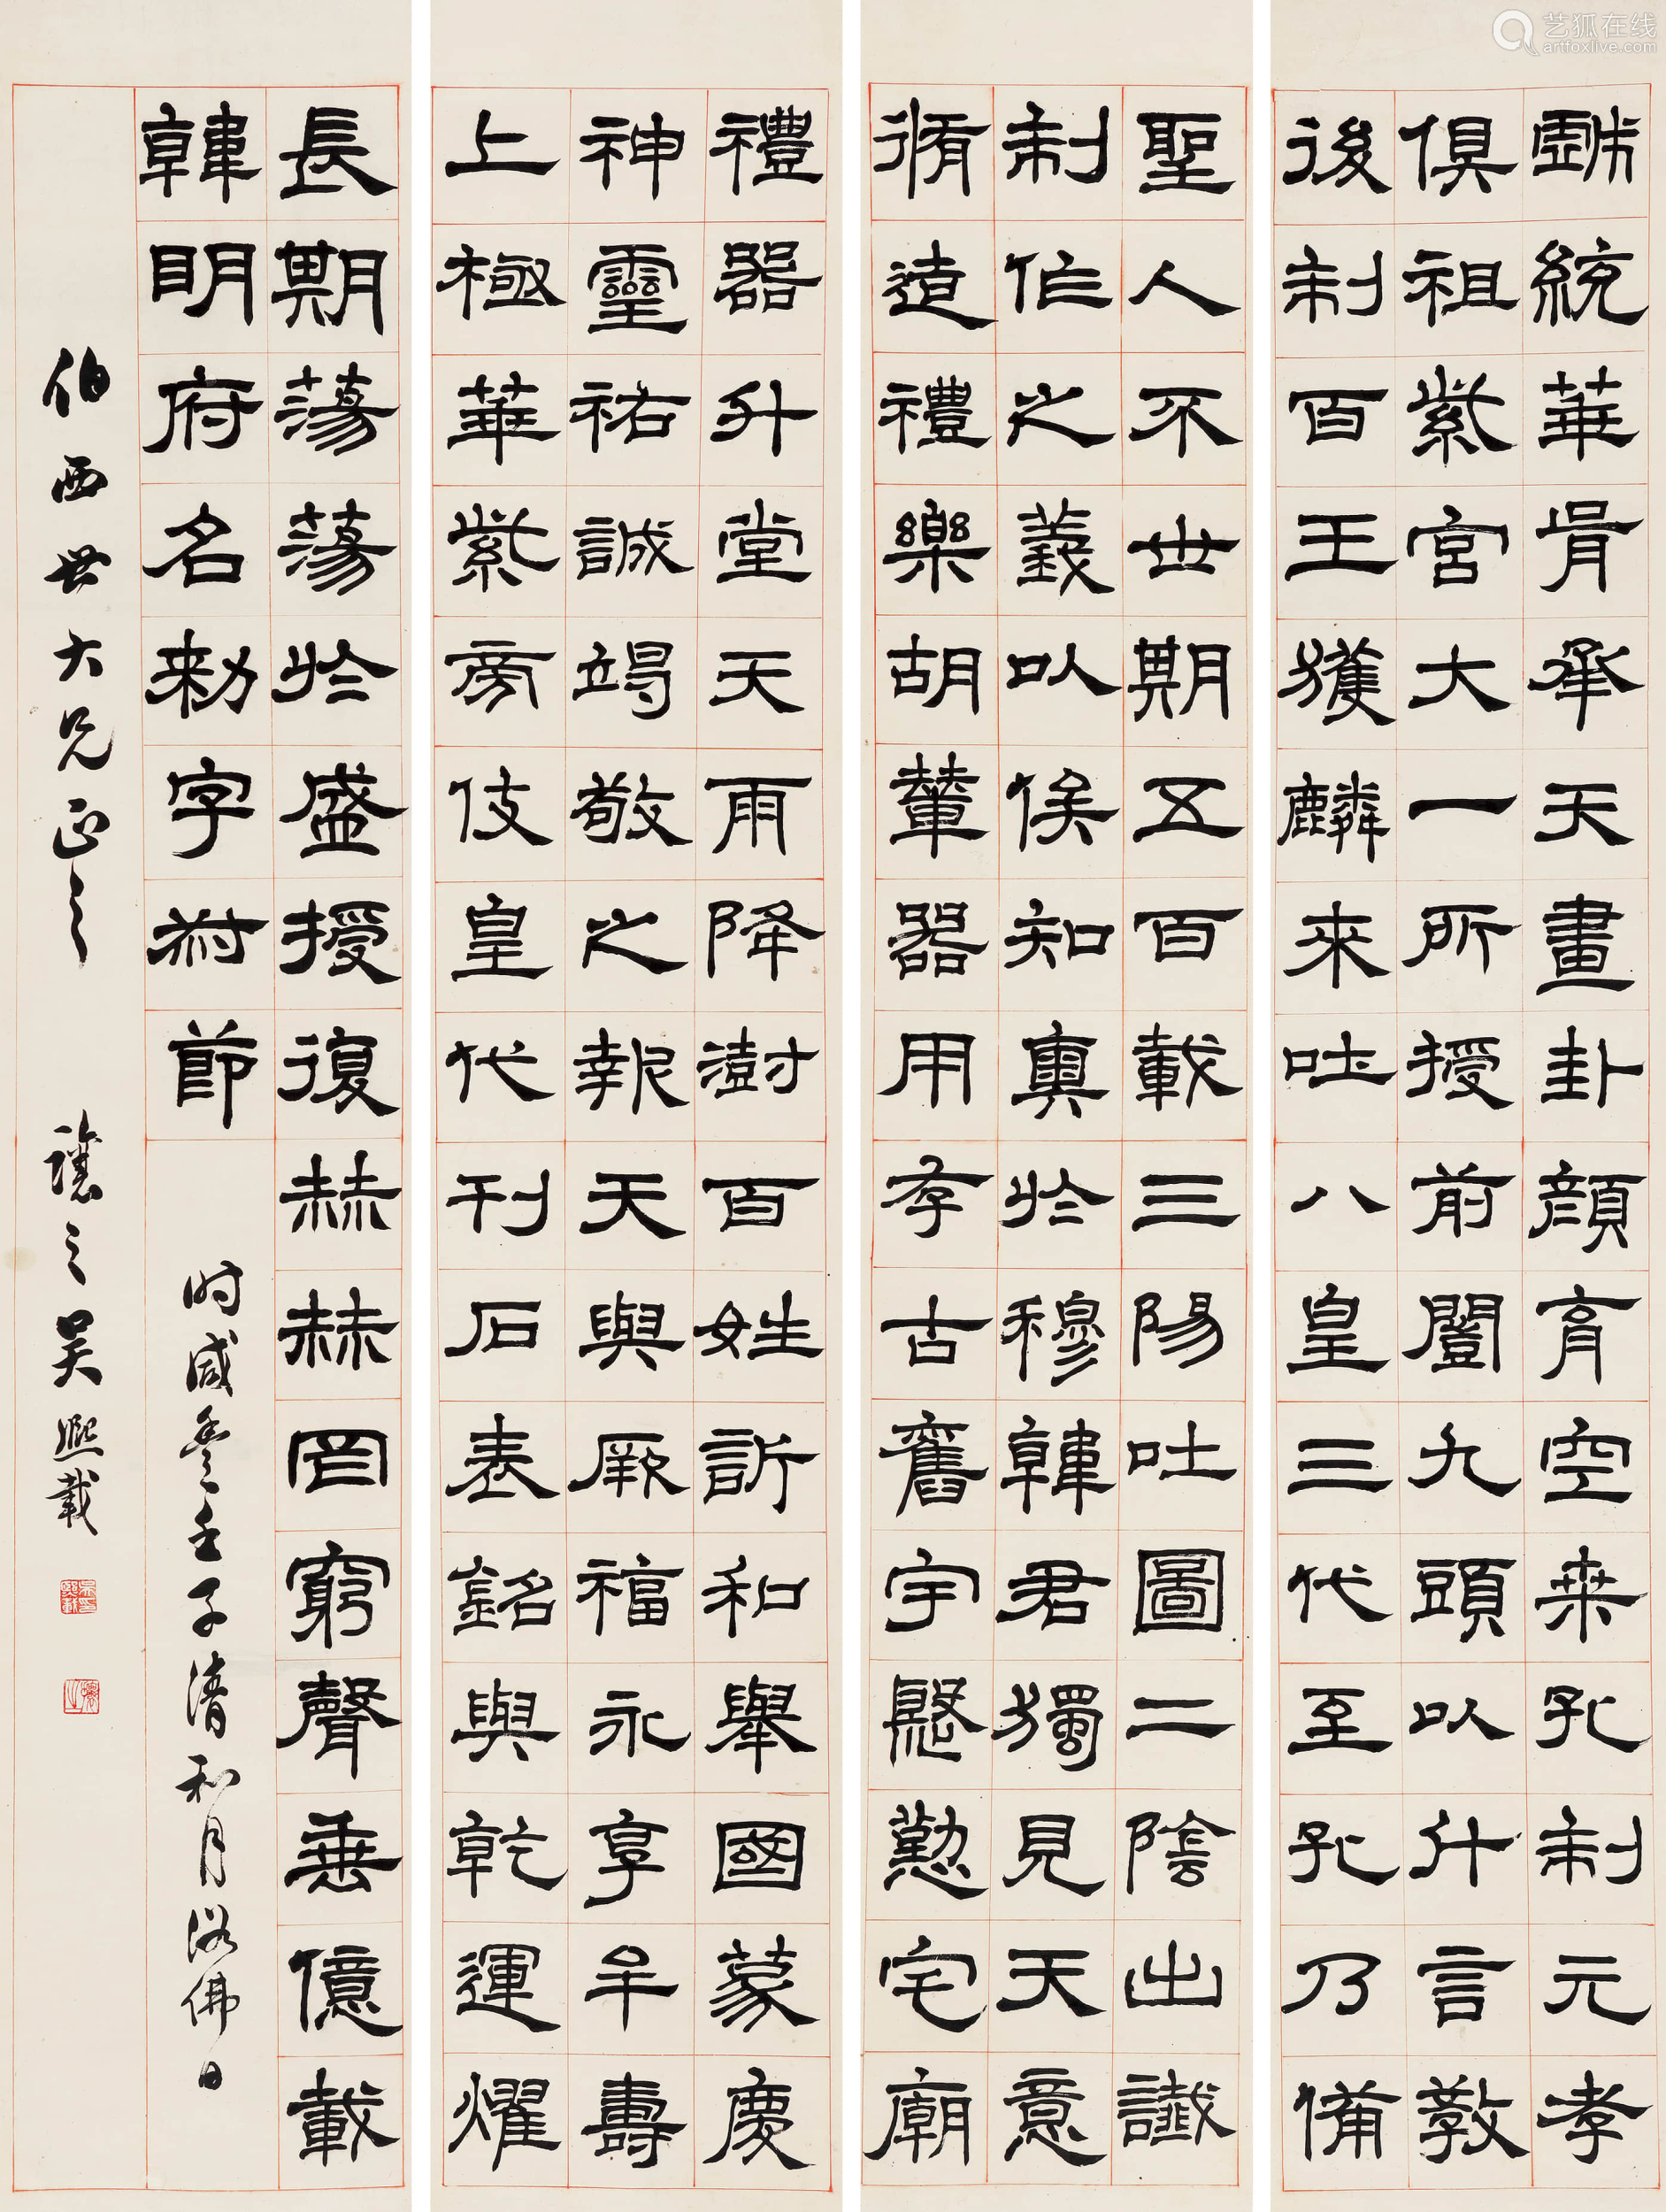 戲統華胥承天畫卦顏育空桒孔制元孝
俱祖紫宮大一所授前闓九頭以什言教
後制百王獲麟來吐八皇三代至孔乃備
聖人不世期五百載三陽吐圖二陰出讖
制作之義以俟知奧於穆韓君獨見天意
脩造禮樂胡輦器用存古舊宇慇懃宅廟
禮器升堂天雨降澍百姓訢和舉國蒙慶
神靈祐誠竭敬之報天與厥福永享牟壽
上極華紫旁伎皇代刊石表銘與乾運燿
長期蕩蕩於盛授復赫赫罔窮聲垂億載
韓明府名勑字叔節
時咸豐壬子清和月浴佛日
伯西世大兄正之
讓之吳熙載
吳熙載印
讓之
艺狐在线
artfoxlive.com